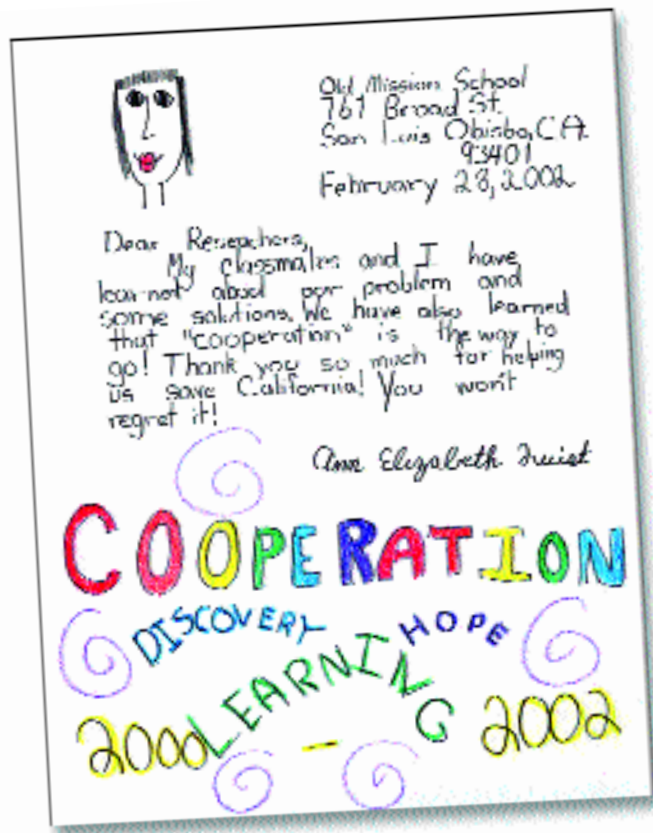 Old Mission School
767 Broad St.
San Luis Obisbo, CA.
93401
February 28, 2002
Dear Reseachers,
My classmates and I have
lear-not about our problem and
some solutions. We have also learned
that "cooperation" is the way to
go! Thank you so much for helping
us save California! You won't
regret it!
Ann Elizabeth Twist
COOPERATION
DISCOVERY HOPE
LEARNING
2000 - 2002